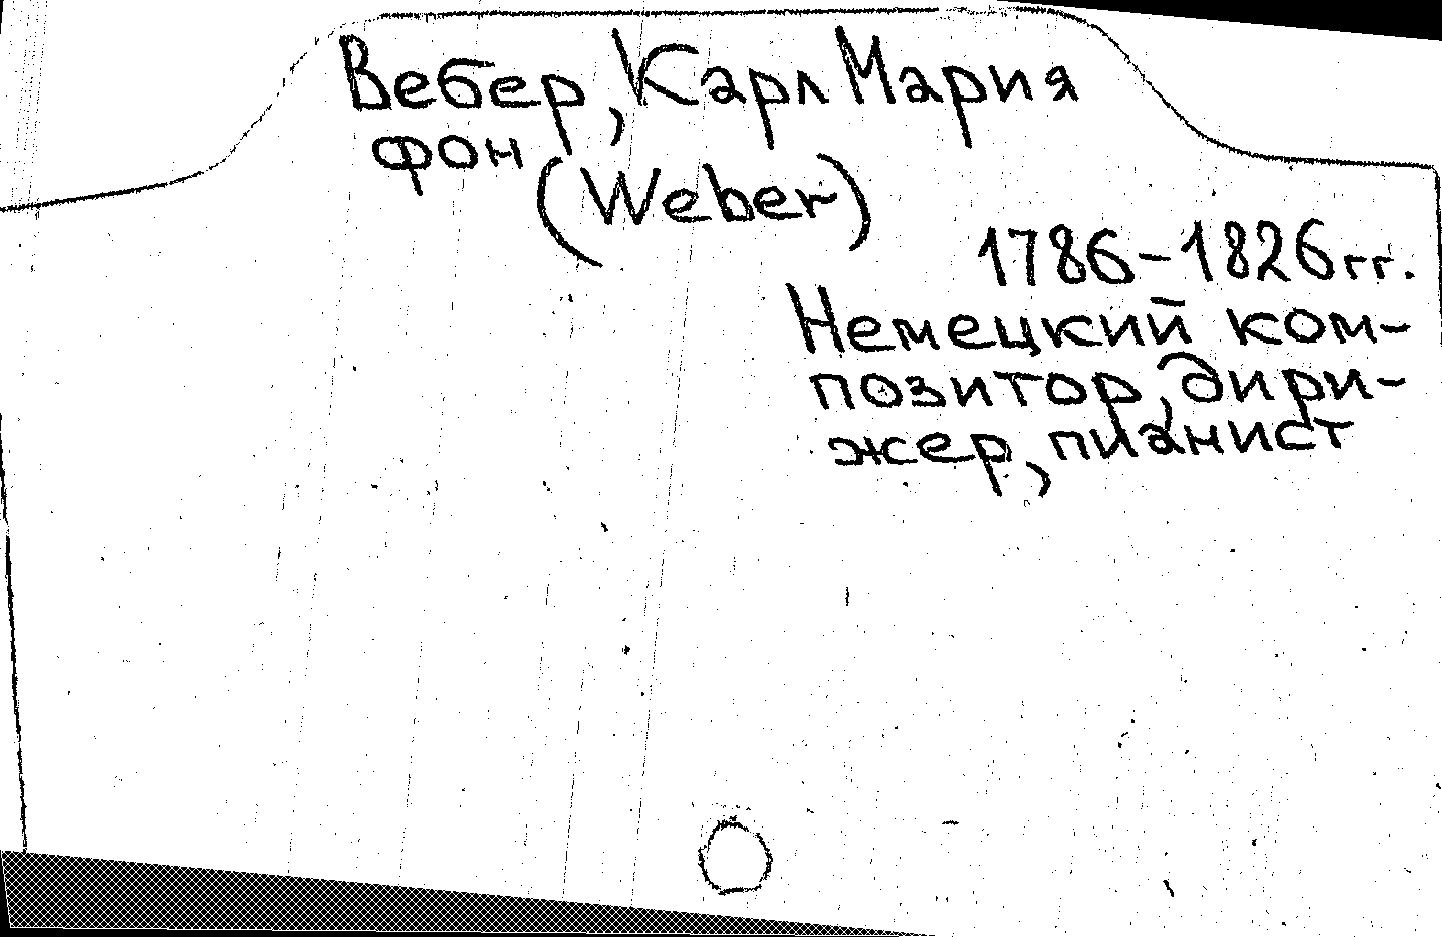 Вебер, Карл Мария
фон
(Weber)
1786-1826гг.
Немецкий ком-
позитор, дири-
жер, пианист